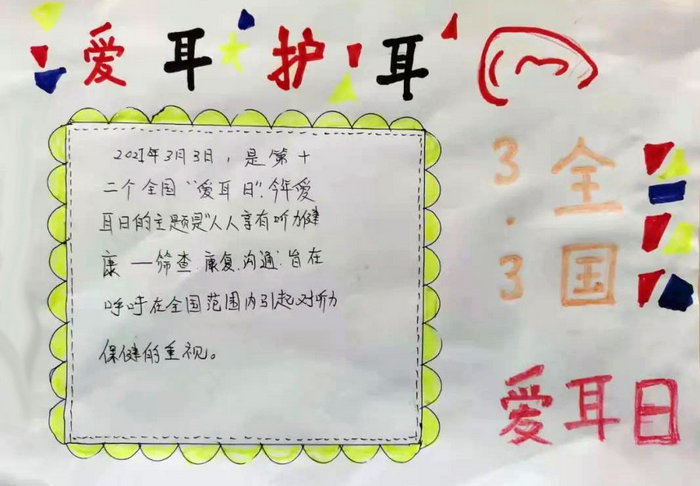 爱耳护耳
2021年3月3日，是第十
二个全国“爱耳日”,今年爱
耳日的主题是“人人享有听力健
康 — 筛查.康复.沟通.旨在
呼吁在全国范围内引起对听力
保健的重视。
3.3
全国
爱耳日